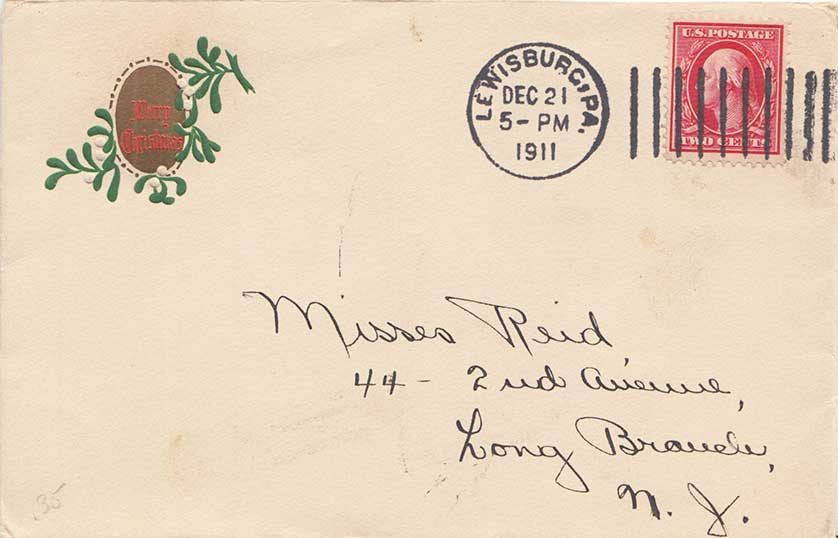 Merry
Christmas
LEWISBURG, PA.
DEC 21
5- PM
1911
U.S. POSTAGE
TWO CENTS
Misses Reid,
44 - 2nd Avenue,
Long Branch,
N. J.
.35